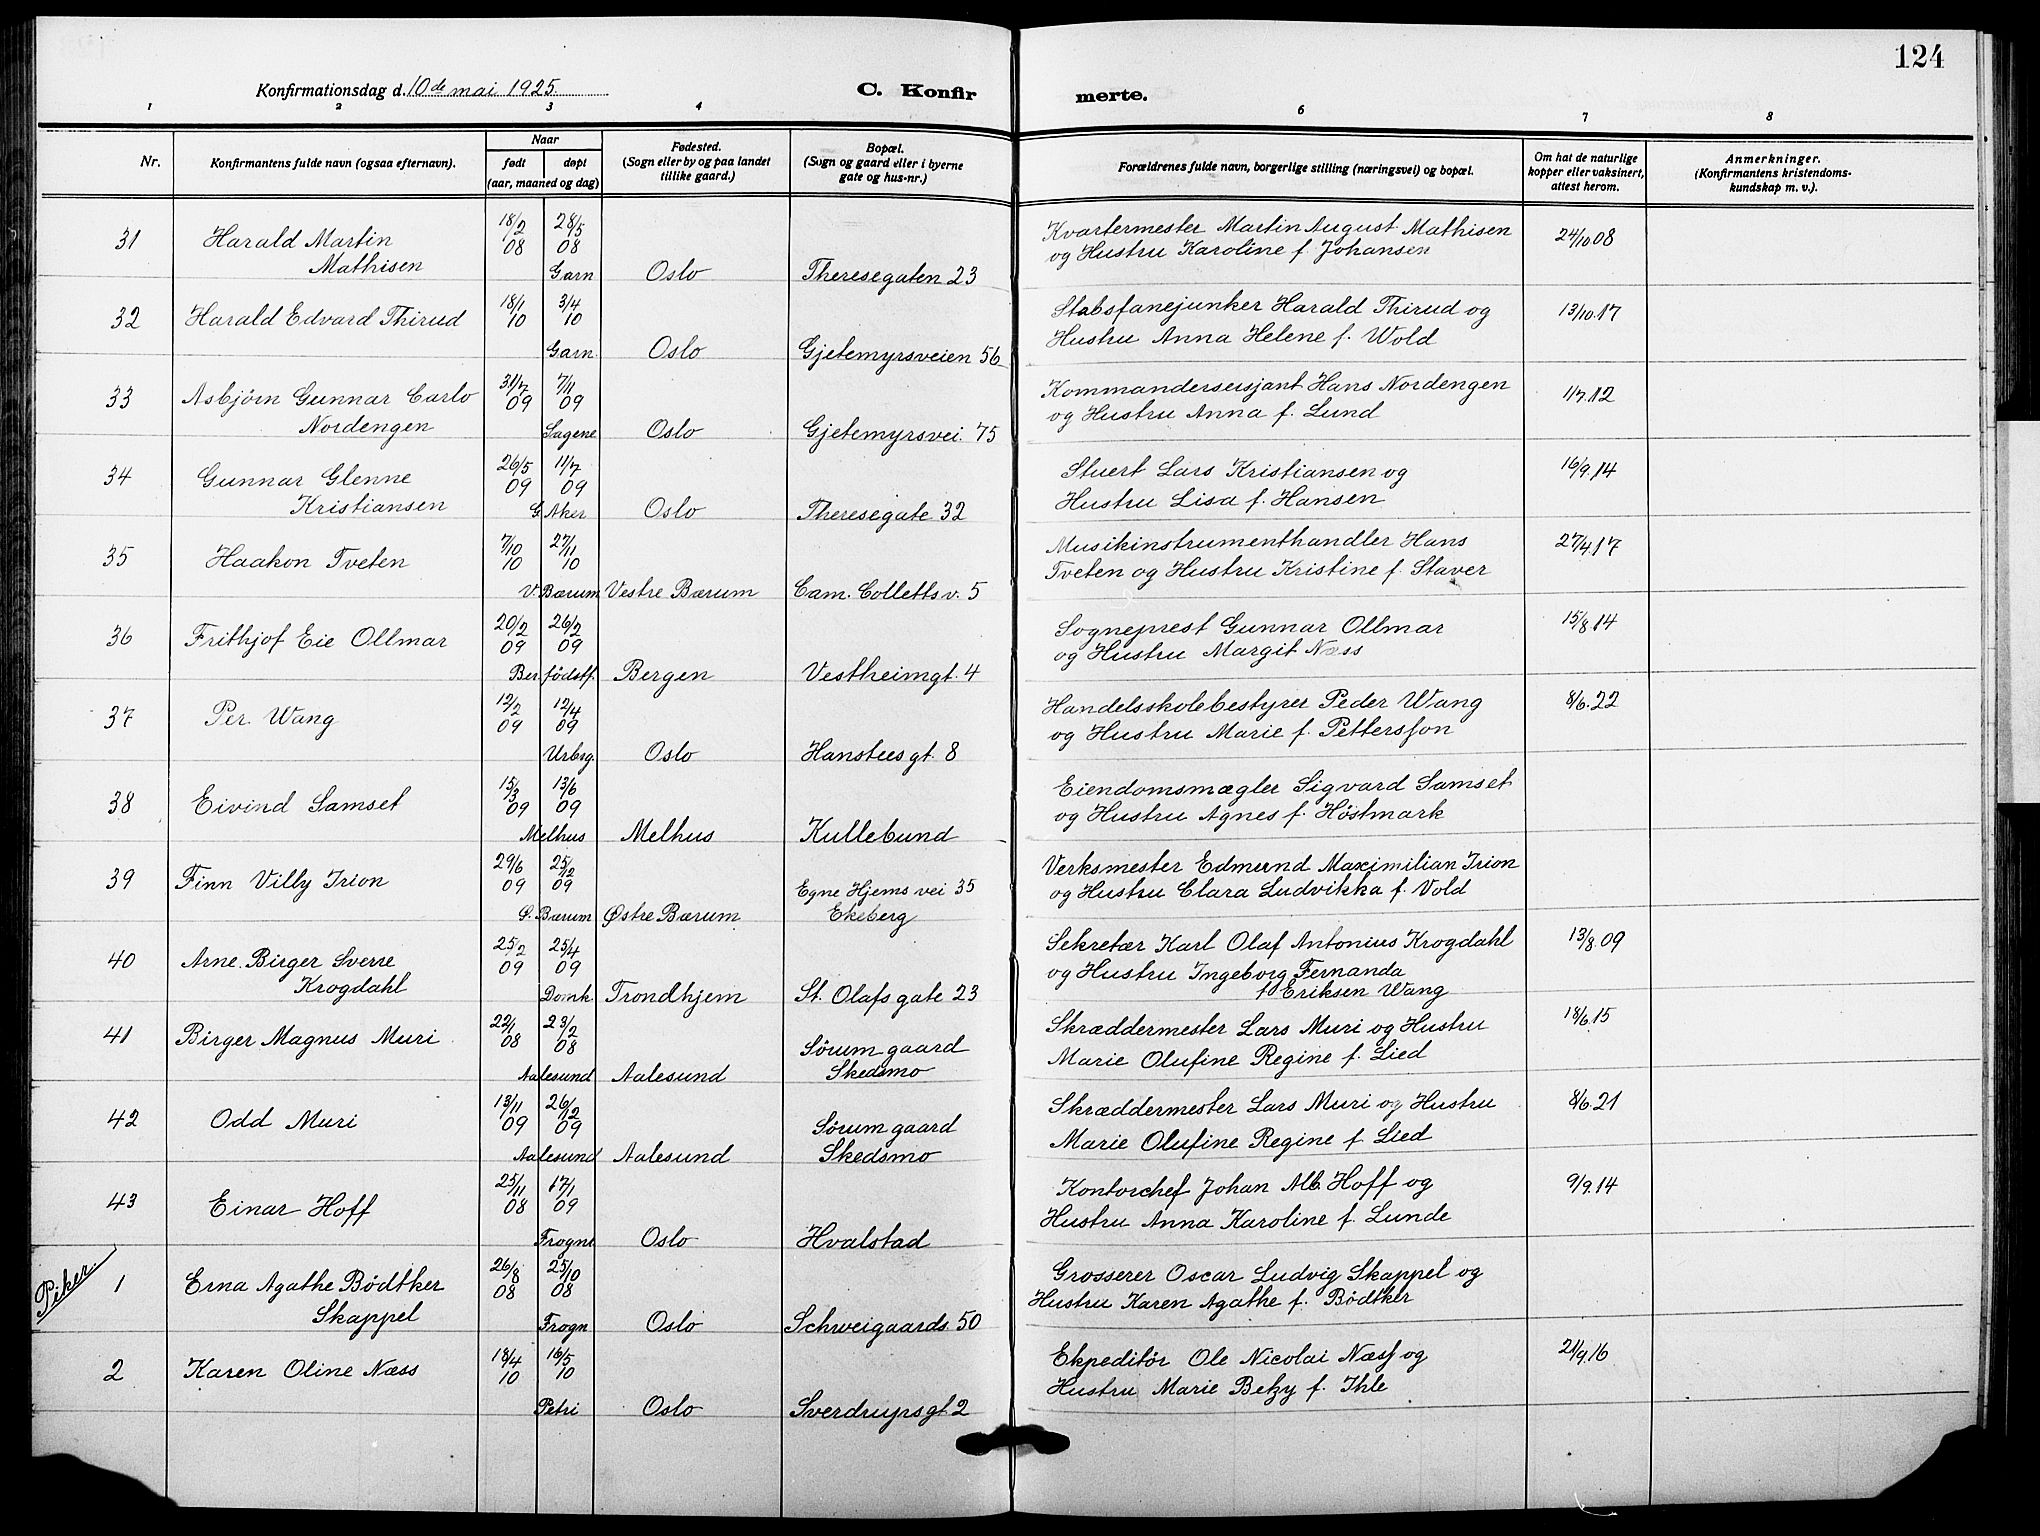 124
Konfirmationsdag d. 10de mai 1925.
C. Konfirmerte.
1 2 3 4 6 7 8
Nr.
Konfirmantens fulde navn (ogsaa efternavn).
Naar
født døpt
(aar, maaned og dag)
Fødested.
(Sogn eller by og paa landet
tillike gaard.)
Bopæl.
(Sogn og gaard eller i byerne
gate og hus-nr.)
Forældrenes fulde navn, borgerlige stilling (næringsvei) og bopæl.
Om hat de naturlige
kopper eller vaksinert,
attest herom.
Anmerkninger.
(Konfirmantens kristendoms-
kundskap m. v.).
31 Harald Martin 18/2 08 28/5 08 Kvartermester Martin August Mathisen 24/10 08
Mathisen Garn Oslo Theresegaten 23 og Hustru Karoline f. Johansen
32 Harald Edvard Thirud 18/1 10 3/4 10 Stabsfanejunker Harald Thirud og 13/10.17
Garn. Oslo Gjetemyrsveien 56 Hustru Anna Helene f. Wold
33 Asbjörn Gunnar Carlo 31/7 09 7/11 09 Kommandersersjant Hans Nordengen 1/7.12
Nordengen Sagene Oslo Gjetemyrsvei. 75 og Hustru Anna f. Lund
34 Gunnar Glenne 26/5 09 11/7 09 Stuert Lars Kristiansen og 16/9.14
Kristiansen G. Aker Oslo Theresegate 32 Hustru Lisa f. Hansen
35 Haakon Tveten 7/10 10 27/11 10 Musikinstrumenthandler Hans 27/4.17
V. Bærum Vestre Bærum Cam. Colletts v. 5 Tveten og Hustru Kristine f. Staver
36 Frithjof Eie Ollmar 20/2 09 26/2 09 Sogneprest Gunnar Ollmar 15/8.14
Ber. födstf. Bergen Vestheimgt. 4 og Hustru Margit Næss
37 Per Wang 12/2 09 12/4 09 Handelsskolebestyrer Peder Wang 8/6.22
Urbsg. Oslo Hanstees gt. 8 og Hustru Marie f. Pettersson
38 Eivind Samset 15/3 09 13/6 09 Eiendomsmægler Sigvard Samset
Melhus Melhus Kullebund og Hustru Agnes f. Höstmark
39 Finn Villy Irion 29/6 09 25/12 09 Egne Hjems vei 35 Verksmester Edmund Maximilian Irion
Bærum Østre Bærum Ekeberg og Hustru Clara Ludvikka f. Vold
40 Arne Birger Sverre 25/2 09 25/4 09 Sekretær Karl Olaf Antonius Krogdahl 13/8.09
Krogdahl Domk. Trondhjem St. Olafs gate 23 og Hustru Ingeborg Fernanda
f. Eriksen Wang
41 Birger Magnus Muri 22/1 08 23/2 08 Sörum gaard Skræddermester Lars Muri og Hustru 18/6.15
Aalesund Aalesund Skedsmo Marie Olufine Regine f. Lied
42 Odd Muri 13/11 09 26/12 09 Sörum gaard Skræddermester Lars Muri og Hustru 8/6.21
Aalesund Aalesund Skedsmo Marie Olufine Regine f. Lied
43 Einar Hoff 25/11 08 17/1 09 Kontorchef Johan Alb. Hoff og 9/9.14
Frogne Oslo Hvalstad Hustru Anna Karoline f. Lunde
Piker.
1 Erna Agathe Bödtker 26/8 08 25/10 08 Grosserer Oscar Ludvig Skappel og
Skappel Frogn Oslo Schweigaards. 50 Hustru Karen Agathe f. Bödtker
2 Karen Oline Næss 18/4 10 16/5 10 Ekpeditör Ole Nicolai Næss og 21/9.16
Petri Oslo Sverdrups gt. 2 Hustru Marie Betzy f. Ihle